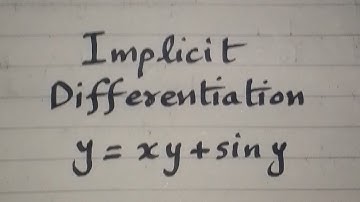 Implicit
Differentiation
y = xy + sin y